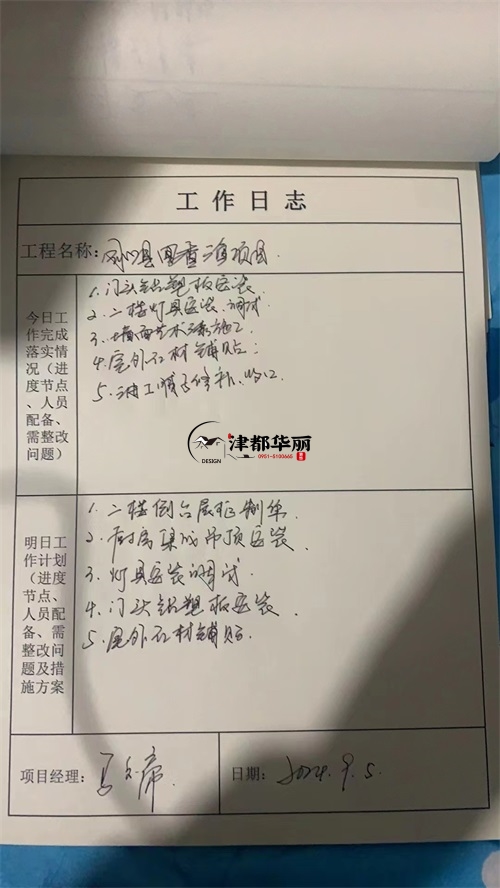 工作日志
工程名称：
今日工作完成落实情况（进度节点、人员配备、需整改问题）
1. 门头铝塑板安装
2. 二楼灯具安装、调试
3. 墙面艺术漆施工
4. 屋外石材铺贴：
5. 油工顺子修补、收口
津都华丽
DESIGN
0951-5100665
明日工作计划（进度节点、人员配备、需整改问题及措施方案
1. 二楼
2. 厨房集成吊顶安装
3. 灯具安装调试
4. 门头铝塑板安装
5. 屋外石材铺贴.
项目经理：
日期： 2024. 9. 5.